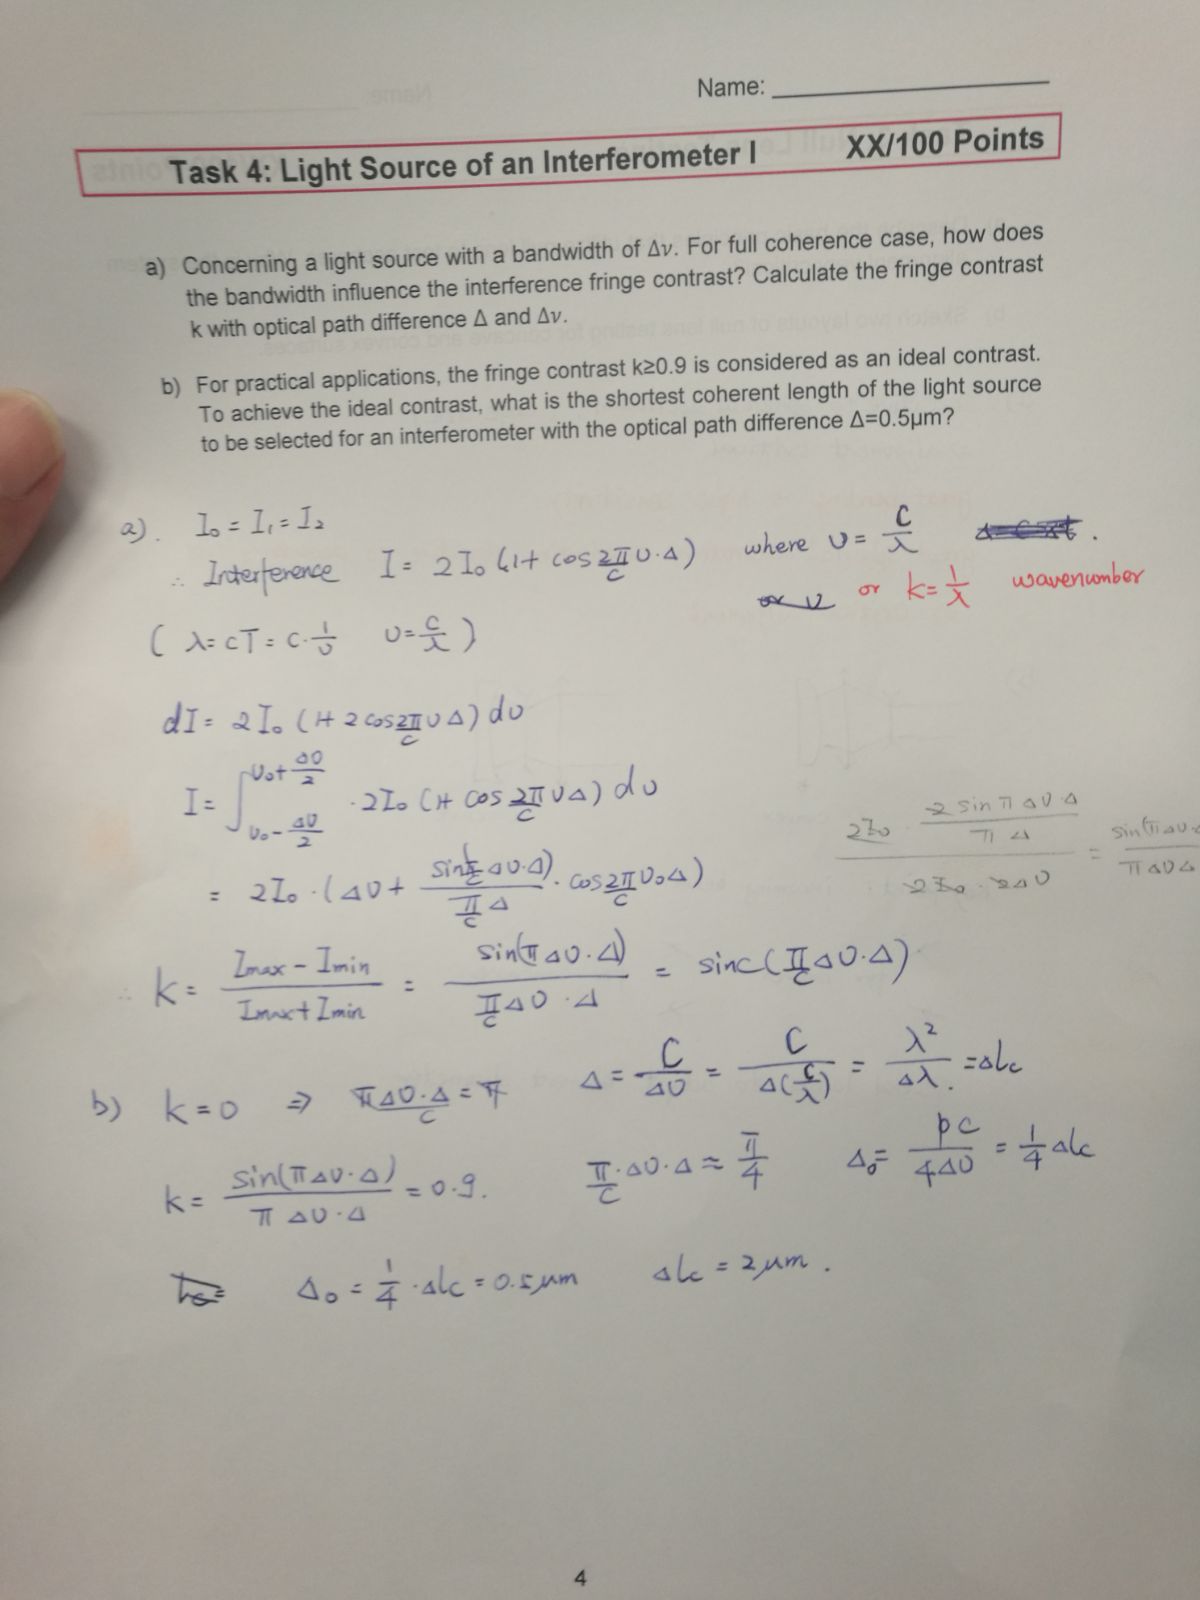 Name:
Task 4: Light Source of an Interferometer I XX/100 Points
a) Concerning a light source with a bandwidth of Δν. For full coherence case, how does
the bandwidth influence the interference fringe contrast? Calculate the fringe contrast
k with optical path difference Δ and Δν.
b) For practical applications, the fringe contrast k≥0.9 is considered as an ideal contrast.
To achieve the ideal contrast, what is the shortest coherent length of the light source
to be selected for an interferometer with the optical path difference Δ=0.5μm?
a). I₀ = I₁ = I₂
∴ Interference I = 2I₀ (1+ cos 2π/c υ·Δ) where υ = c/λ
or k = 1/λ wavenumber
( λ = cT = c·1/υ υ = c/λ )
dI = 2I₀ (1+ 2cos 2π/c υΔ) dυ
I = ∫_{υ₀ - Δυ/2}^{υ₀ + Δυ/2} ·2I₀ (1+ cos 2π/c υΔ) dυ
= 2I₀ · (Δυ + sin(π/c Δυ·Δ) / (π/c Δ) · cos 2π/c υ₀Δ)
2I₀ · (2 sin π Δυ·Δ / π Δ) / (2I₀ · 2Δυ) = sin(πΔυ·Δ / πΔυΔ
∴ k = (Imax − Imin) / (Imax + Imin) = sin(πΔυ·Δ) / (π/c Δυ·Δ) = sinc(π/c Δυ·Δ)
b) k = 0 ⇒ πΔυ·Δ / c = π Δ = c/Δυ = c / Δ(c/λ) = λ²/Δλ. = Δlc
k = sin(πΔυ·Δ) / πΔυ·Δ = 0.9. π/c·Δυ·Δ ≈ π/4 Δ₀ = pc/4Δυ = 1/4 Δlc
Δ₀ = 1/4 · Δlc = 0.5μm Δlc = 2μm.
4